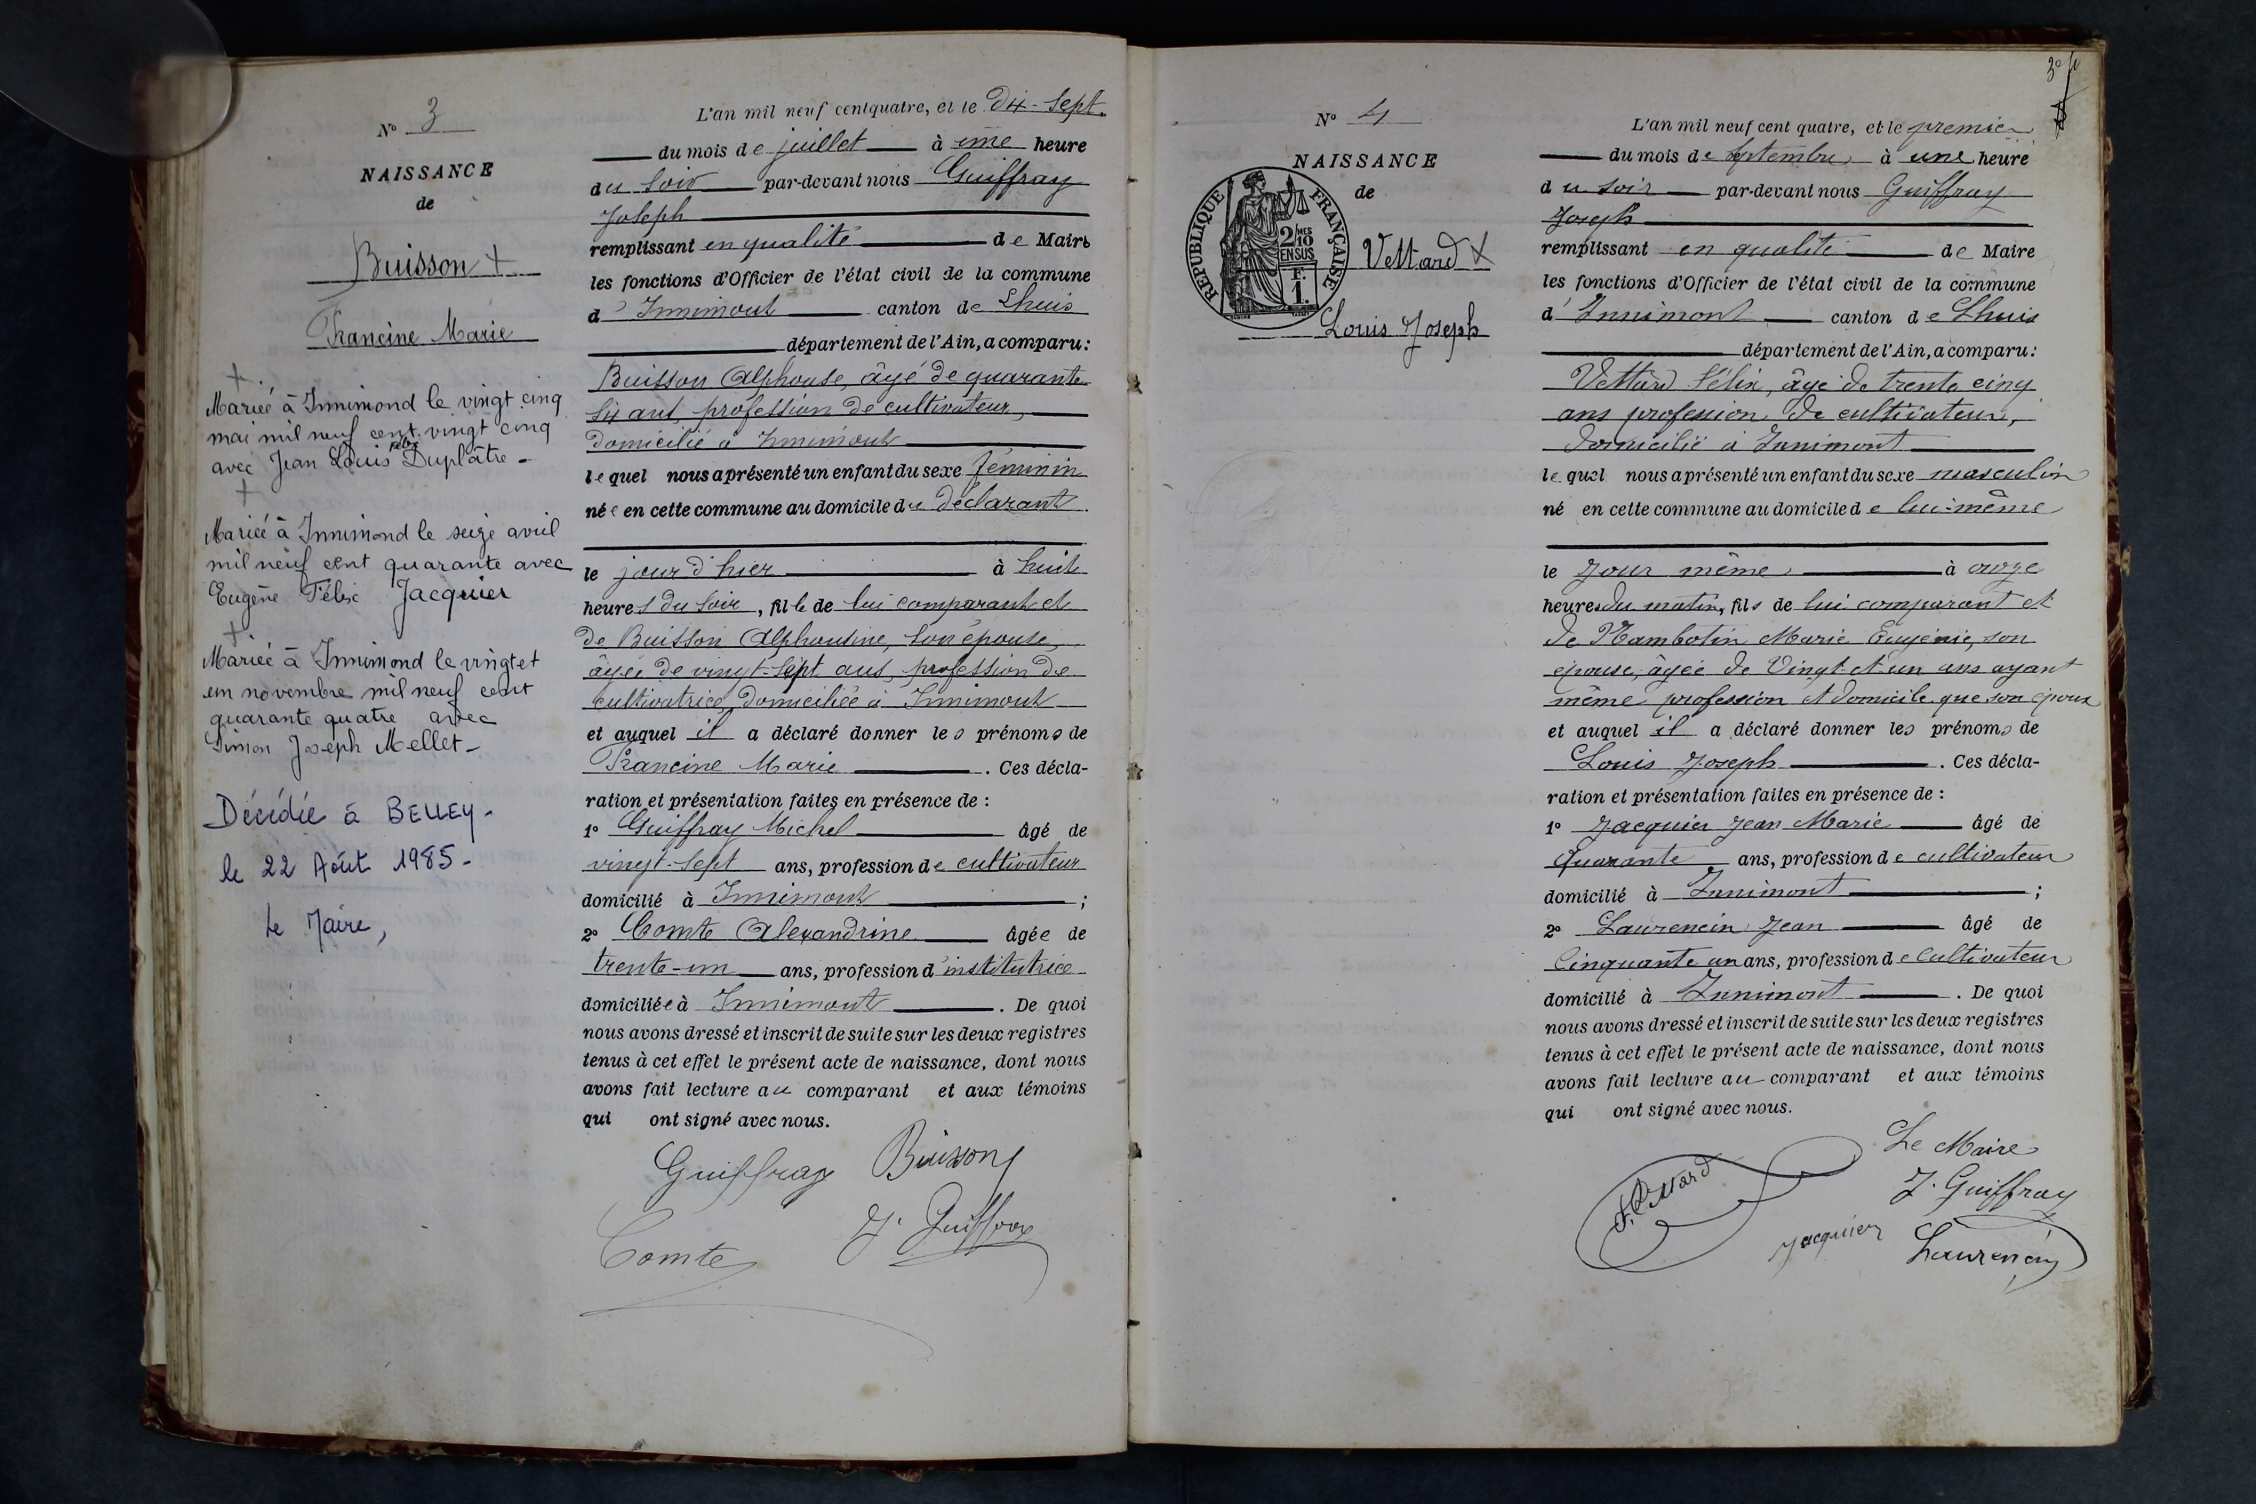 N° 3
NAISSANCE
de
Buisson +
Francine Marie
+
Mariée à Innimond le vingt cinq
mai mil neuf cent vingt cinq
avec Jean Louis Félix Duplâtre -
+
Mariée à Innimond le seize avril
mil neuf cent quarante avec
Eugène Félix Jacquier
+
Mariée à Innimond le vingt et
un novembre mil neuf cent
quarante quatre avec
Simon Joseph Mellet -
Décédée à BELLEY -
le 22 Août 1985 -
Le Maire,
L'an mil neuf cent quatre, et le dix-sept
du mois de juillet à une heure
du soir par-devant nous Guiffray
Joseph
remplissant en qualité de Maire
les fonctions d'Officier de l'état civil de la commune
d'Innimont canton de Lhuis
département de l'Ain, a comparu :
Buisson Alphonse, âgé de quarante
six ans, profession de cultivateur,
domicilié à Innimont
lequel nous a présenté un enfant du sexe féminin
née en cette commune au domicile du déclarant
le jour d'hier à huit
heures du soir, fille de lui comparant et
de Buisson Alphonsine, son épouse,
âgée de vingt-sept ans, profession de
cultivatrice, domiciliée à Innimont
et auquel il a déclaré donner les prénoms de
Francine Marie. Ces décla-
ration et présentation faites en présence de :
1° Guiffray Michel âgé de
vingt-sept ans, profession de cultivateur
domicilié à Innimont ;
2° Comte Alexandrine âgée de
trente-un ans, profession d'institutrice
domiciliée à Innimont. De quoi
nous avons dressé et inscrit de suite sur les deux registres
tenus à cet effet le présent acte de naissance, dont nous
avons fait lecture au comparant et aux témoins
qui ont signé avec nous.
Guiffray Buisson
Comte J. Guiffray
3e
N° 4
NAISSANCE
de
RÉPUBLIQUE FRANÇAISE
2/10 MES
EN SUS
F.
1.
Vettard +
Louis Joseph
L'an mil neuf cent quatre, et le premier
du mois de septembre à une heure
du soir par-devant nous Guiffray
Joseph
remplissant en qualité de Maire
les fonctions d'Officier de l'état civil de la commune
d'Innimont canton de Lhuis
département de l'Ain, a comparu :
Vettard Félix, âgé de trente cinq
ans profession de cultivateur,
domicilié à Innimont
lequel nous a présenté un enfant du sexe masculin
né en cette commune au domicile de lui-même
le jour même à onze
heures du matin, fils de lui comparant et
de Mambotin Marie Eugénie, son
épouse, âgée de vingt-et-un ans ayant
même profession et domicile que son époux
et auquel il a déclaré donner les prénoms de
Louis Joseph. Ces décla-
ration et présentation faites en présence de :
1° Jacquier Jean Marie âgé de
quarante ans, profession de cultivateur
domicilié à Innimont ;
2° Laurencin Jean âgé de
Cinquante un ans, profession de cultivateur
domicilié à Innimont. De quoi
nous avons dressé et inscrit de suite sur les deux registres
tenus à cet effet le présent acte de naissance, dont nous
avons fait lecture au comparant et aux témoins
qui ont signé avec nous.
Le Maire
F. Vettard J. Guiffray
Jacquier Laurencin